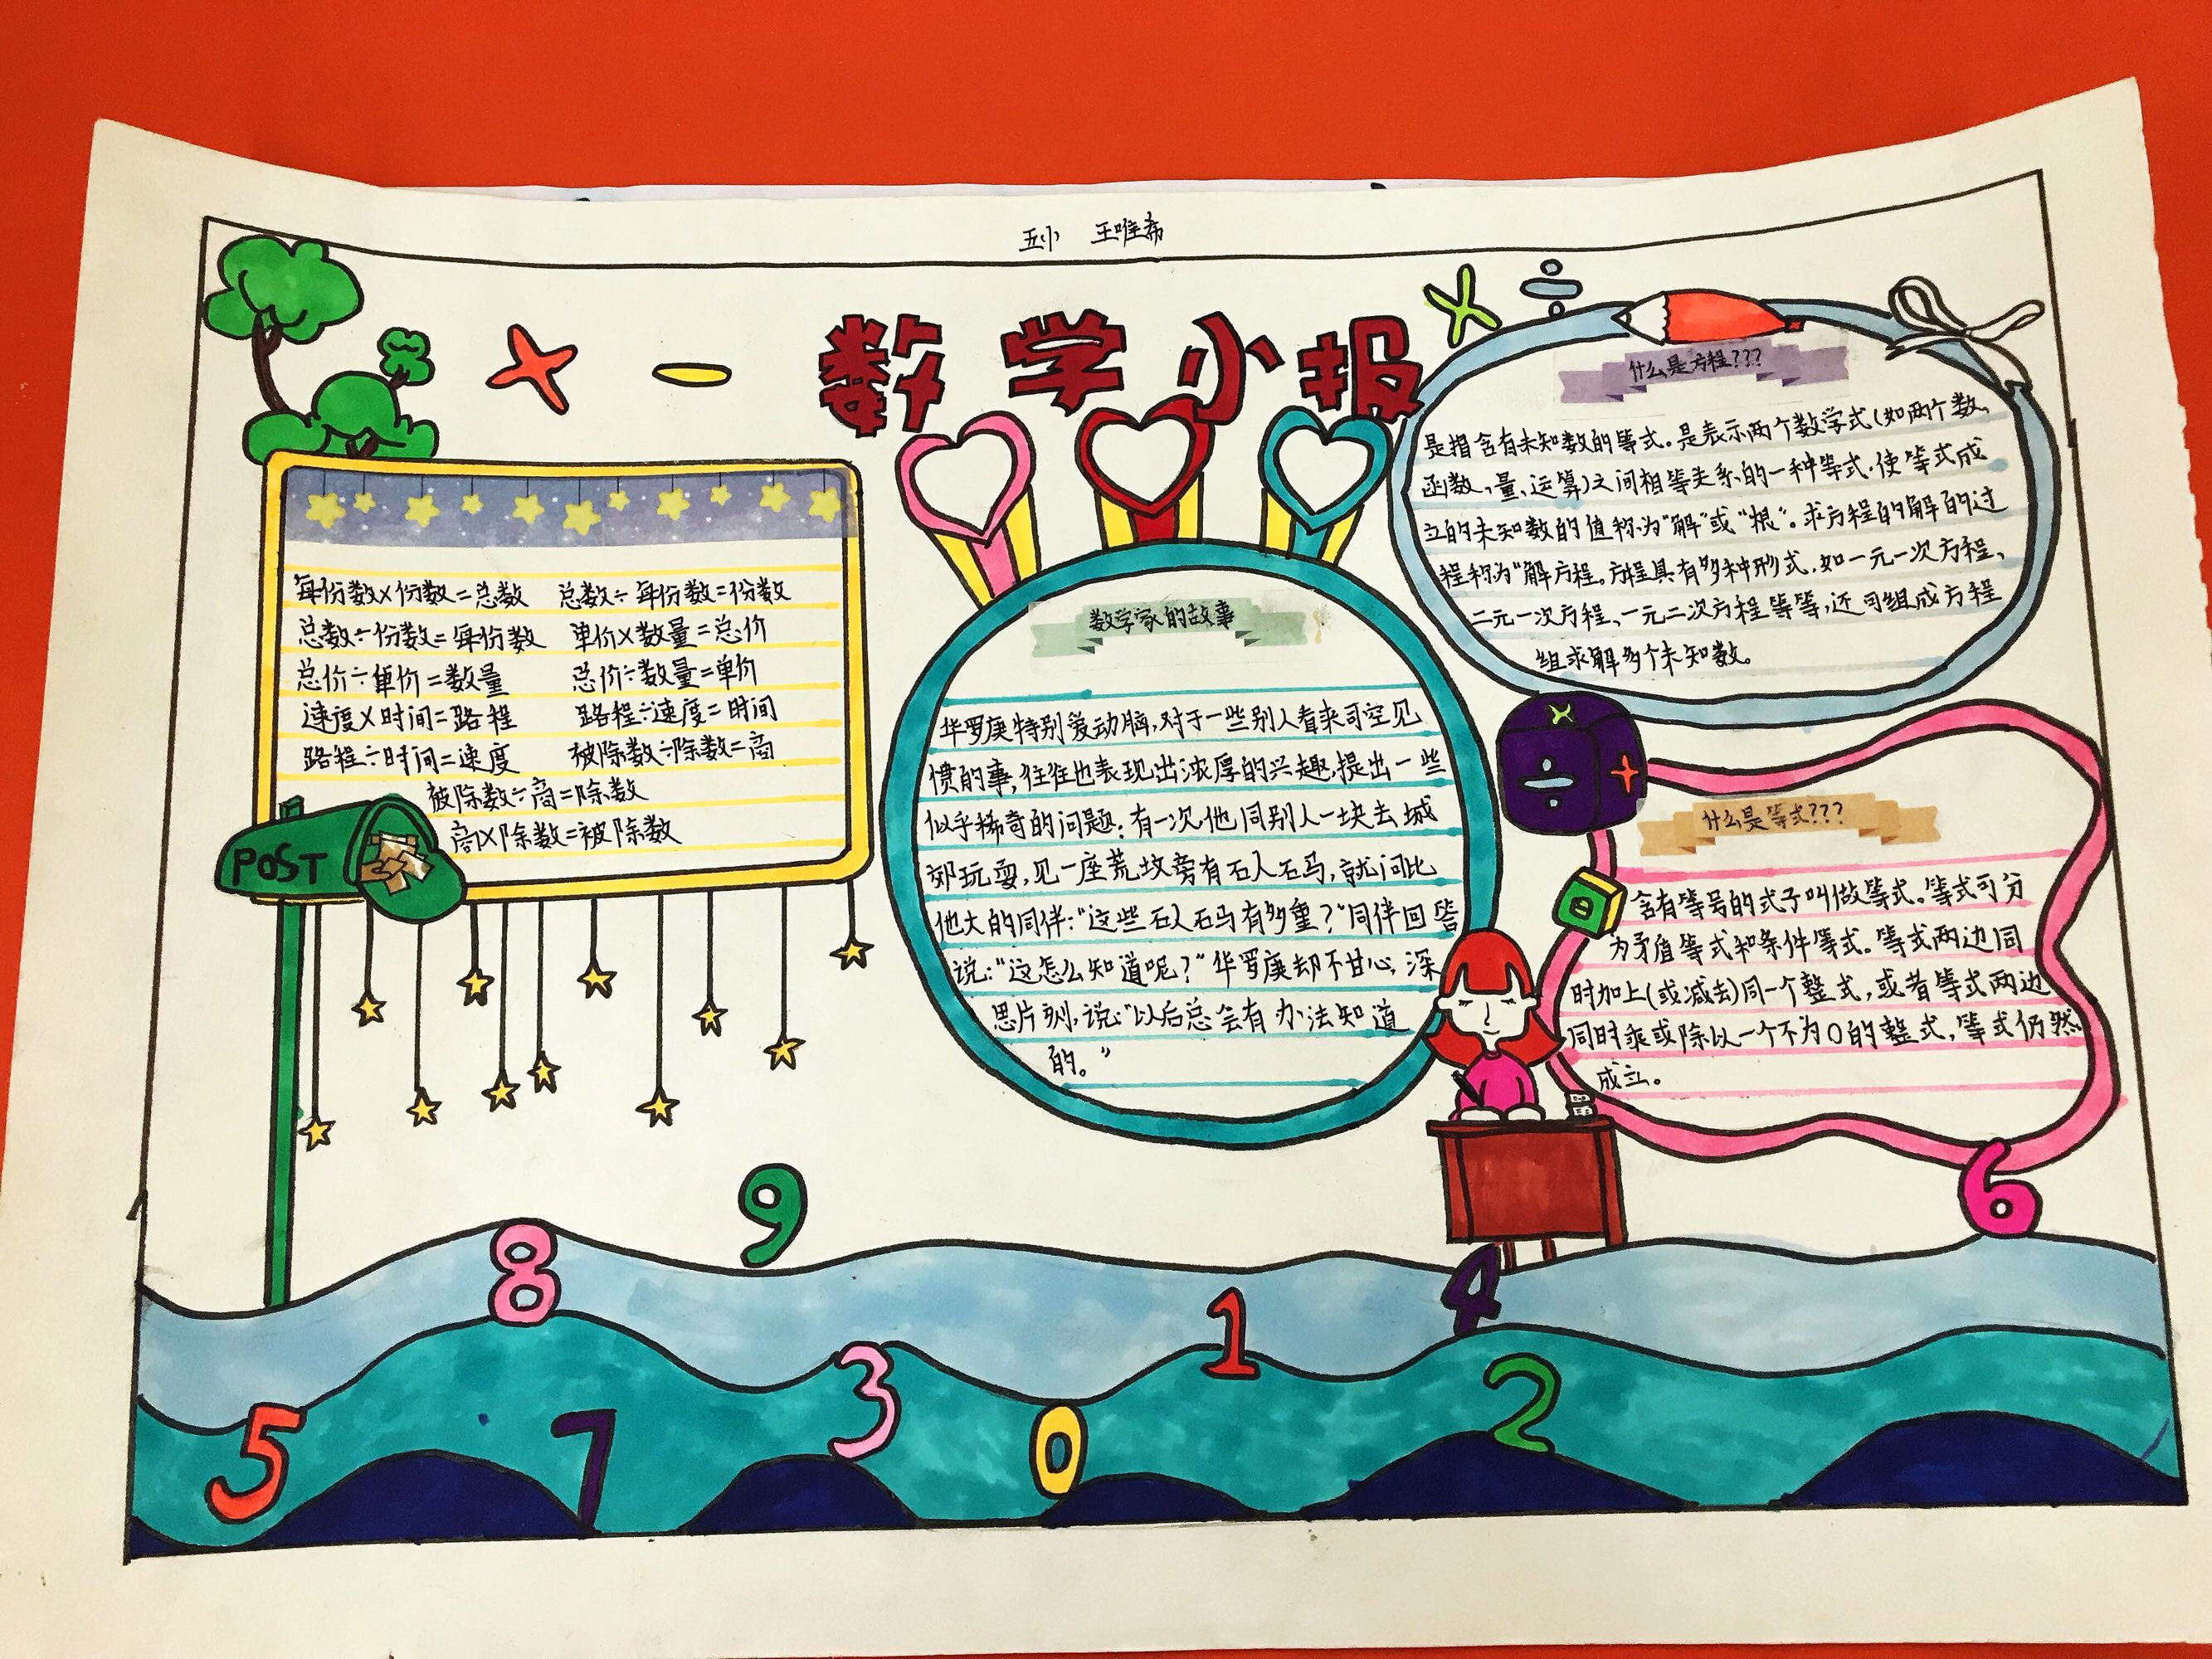 五小 王唯希
+ − 数学小报 × ÷
每份数×份数=总数 总数÷每份数=份数
总数÷份数=每份数 单价×数量=总价
总价÷单价=数量 总价÷数量=单价
速度×时间=路程 路程÷速度=时间
路程÷时间=速度 被除数÷除数=商
被除数÷商=除数
商×除数=被除数
POST
数学家的故事
华罗庚特别爱动脑,对于一些别人看来司空见
惯的事,往往也表现出浓厚的兴趣,提出一些
似乎稀奇的问题:有一次他同别人一块去城
郊玩耍,见一座荒坟旁有石人石马,就问比
他大的同伴:“这些石人石马有多重?”同伴回答
说:“这怎么知道呢?”华罗庚却不甘心,深
思片刻,说:“以后总会有办法知道
的。”
什么是方程???
是指含有未知数的等式。是表示两个数学式(如两个数、
函数、量、运算)之间相等关系的一种等式,使等式成
立的未知数的值称为“解”或“根”。求方程的解的过
程称为“解方程。方程具有多种形式,如一元一次方程、
二元一次方程、一元二次方程等等,还可组成方程
组求解多个未知数。
× ÷ +
什么是等式???
含有等号的式子叫做等式。等式可分
为矛盾等式和条件等式。等式两边同
时加上(或减去)同一个整式,或者等式两边
同时乘或除以一个不为0的整式,等式仍然
成立。
6
9
8
4
1
3
2
5
7
0